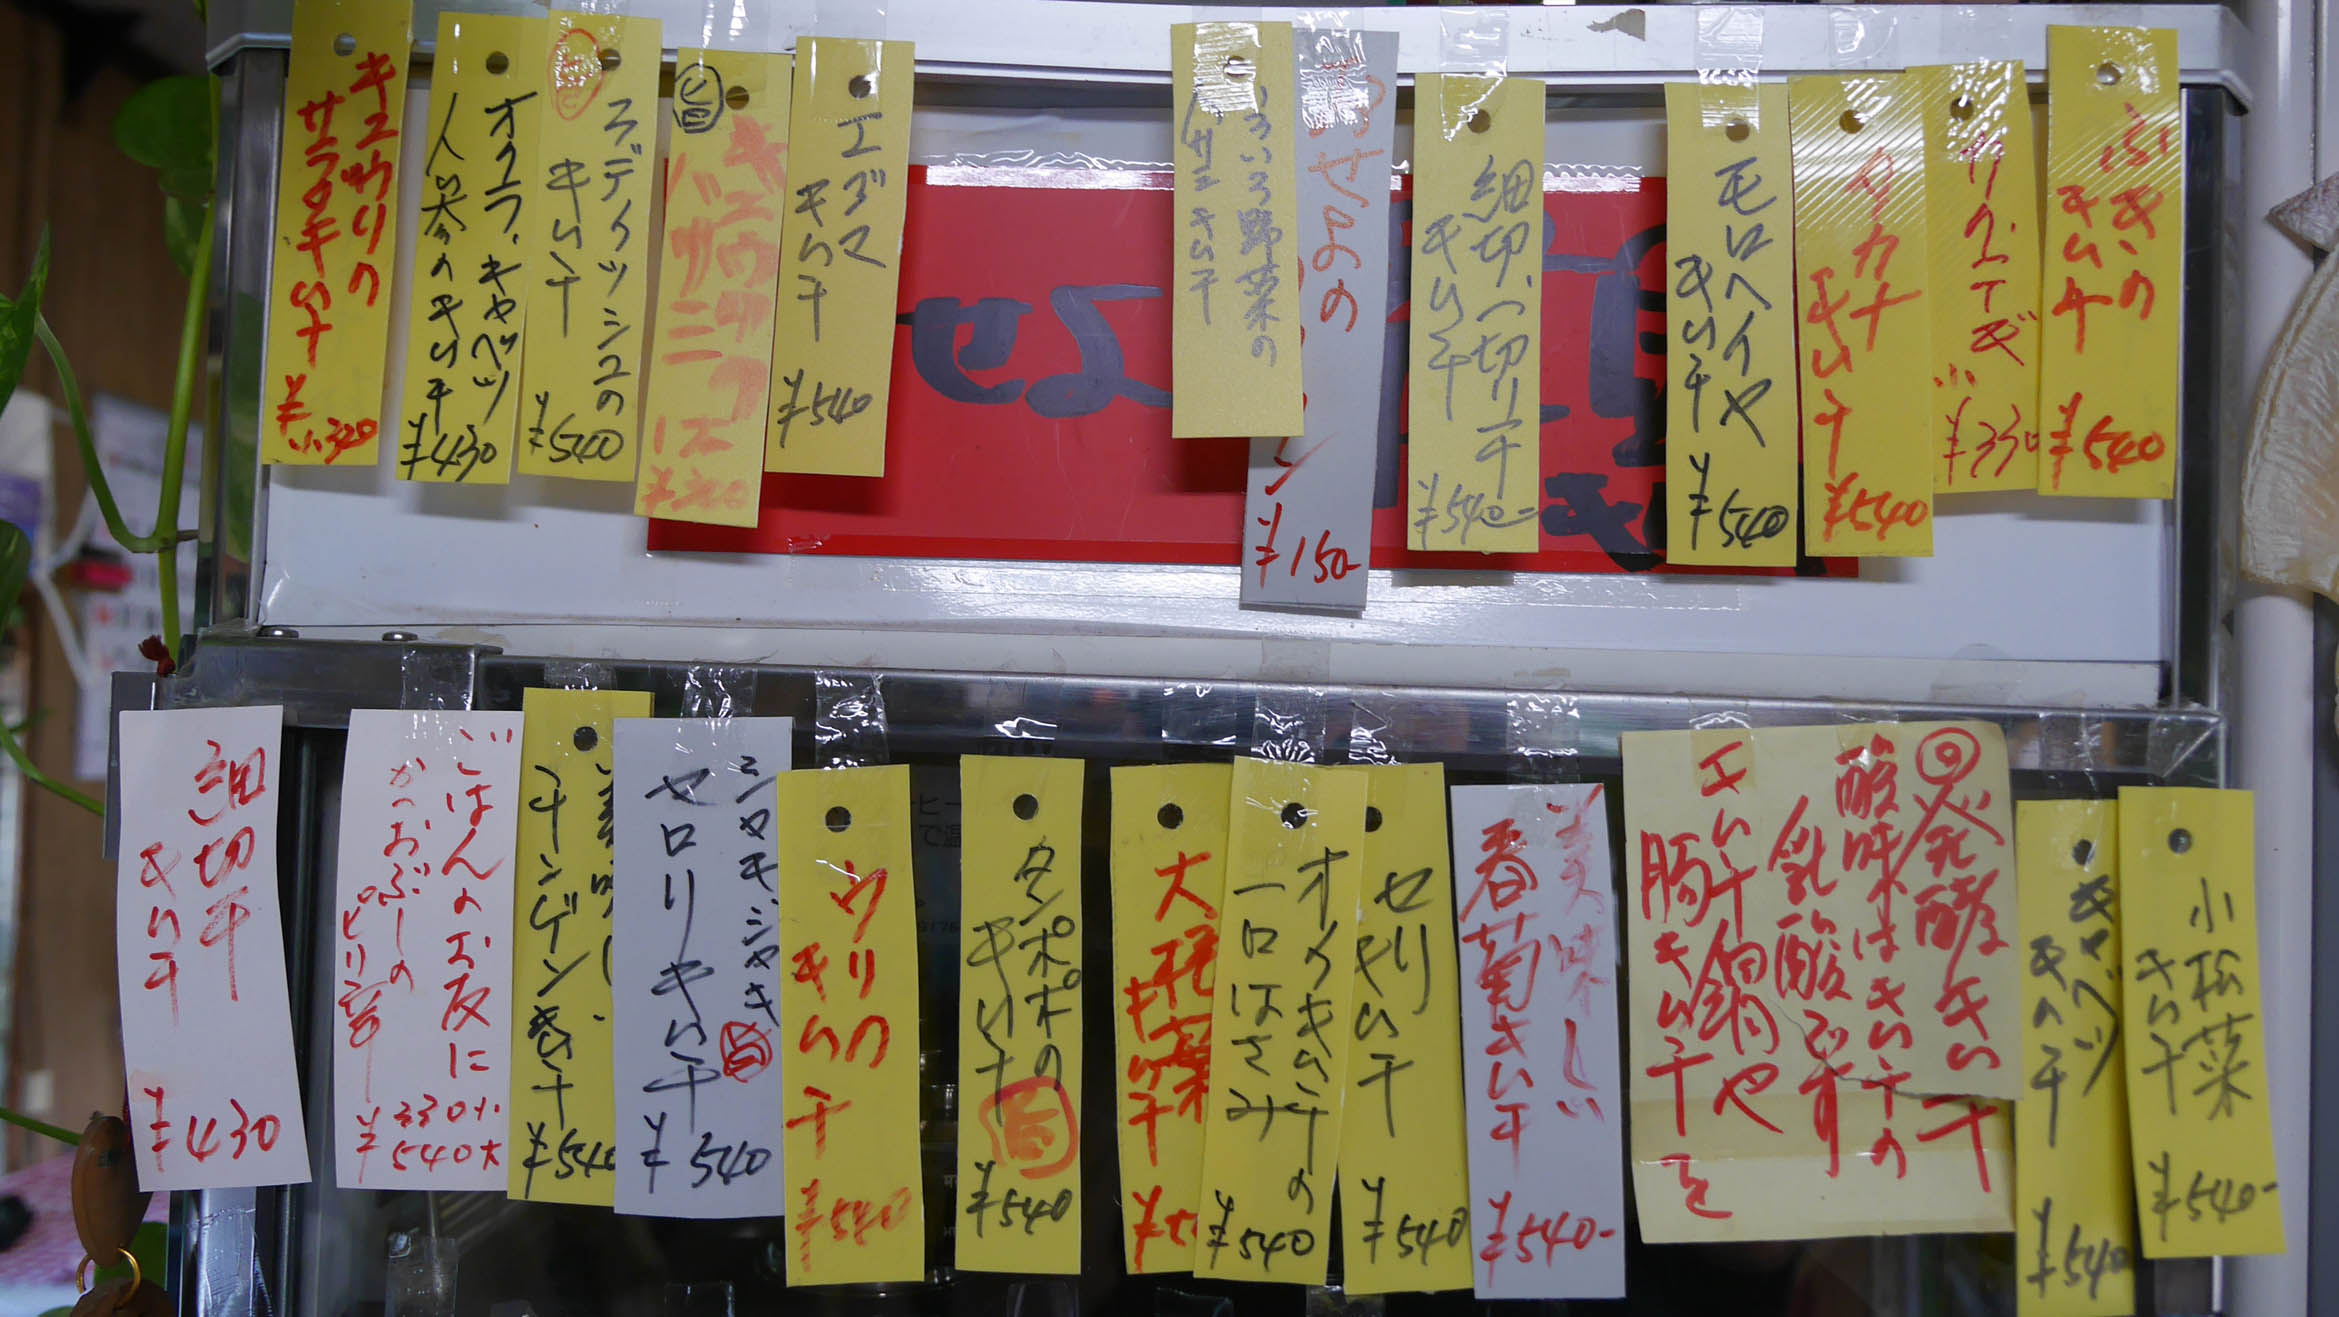 キユウリの
サラダキムチ
オクラ、キャベツ
人参のキムチ
¥430
ラディッシュの
キムチ
¥540
エゴマ
キムチ
¥540
せよ
いろいろ野菜の
キムチ
¥150-
細切、切り干
キムチ
¥540-
モロヘイヤ
キムチ
¥540
タカナ
キムチ
¥540
¥330
ふきの
キムチ
¥540
細切干
キムチ
¥430
ごはんのお友に
かつおぶしの
ピリ辛
330小
¥540大
インゲンキムチ
¥540
シャキシャキ
セロリキムチ
¥540
ウリの
キムチ
¥540
タンポポの
キムチ
¥540
大根葉
キムチ
オイキムチの
一口はさみ
¥540
セリ
キムチ
¥540
美味しい
春菊キムチ
¥540-
発酵キムチ
酸味はキムチの
乳酸です
キムチ鍋や
豚キムチを
キャベツ
キムチ
¥540
小松菜
キムチ
¥540-